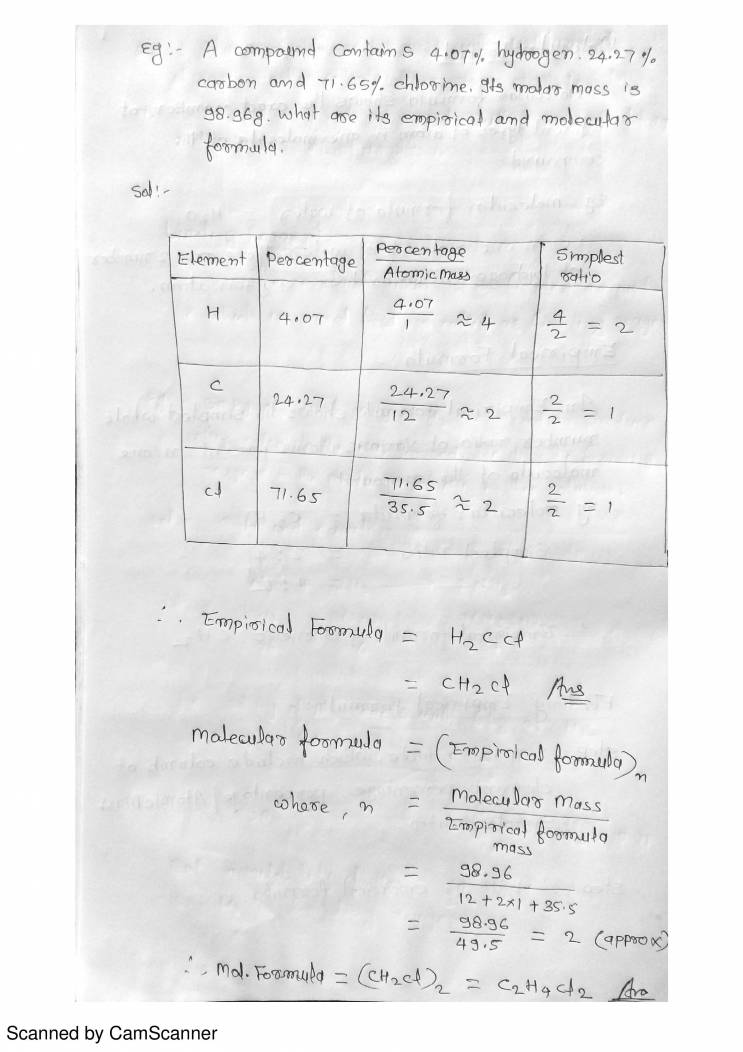 Eg:- A compound contains 4.07% hydrogen. 24.27%
carbon and 71.65% chlorine. Its molar mass is
98.96g. what are its empirical and molecular
formula.
Sol:-
Element Percentage Percentage / Atomic Mass Simplest ratio
H 4.07 4.07 / 1 ≈ 4 4/2 = 2
C 24.27 24.27 / 12 ≈ 2 2/2 = 1
Cl 71.65 71.65 / 35.5 ≈ 2 2/2 = 1
∴ Empirical Formula = H₂CCl
= CH₂Cl Ans
Molecular formula = (Empirical formula)ₙ
where, n = Molecular Mass / Empirical formula mass
= 98.96 / 12 + 2×1 + 35.5
= 98.96 / 49.5 = 2 (approx)
∴ Mol. Formula = (CH₂Cl)₂ = C₂H₄Cl₂ Ans
Scanned by CamScanner